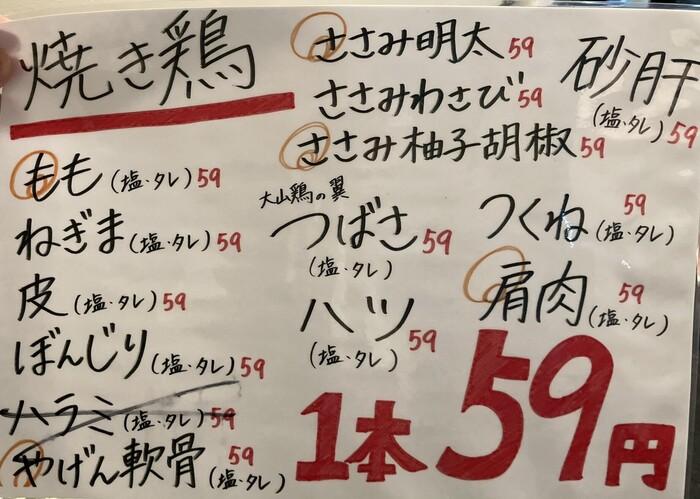 焼き鶏
もも(塩・タレ)59
ねぎま(塩・タレ)59
皮(塩・タレ)59
ぼんじり(塩・タレ)59
ハラミ(塩・タレ)59
やげん軟骨(塩・タレ)59
ささみ明太59
ささみわさび59
ささみ柚子胡椒59
大山鶏の翼
つばさ59
(塩・タレ)
ハツ59
(塩・タレ)
砂肝
(塩・タレ)59
つくね(塩・タレ)59
肩肉(塩・タレ)59
1本59円